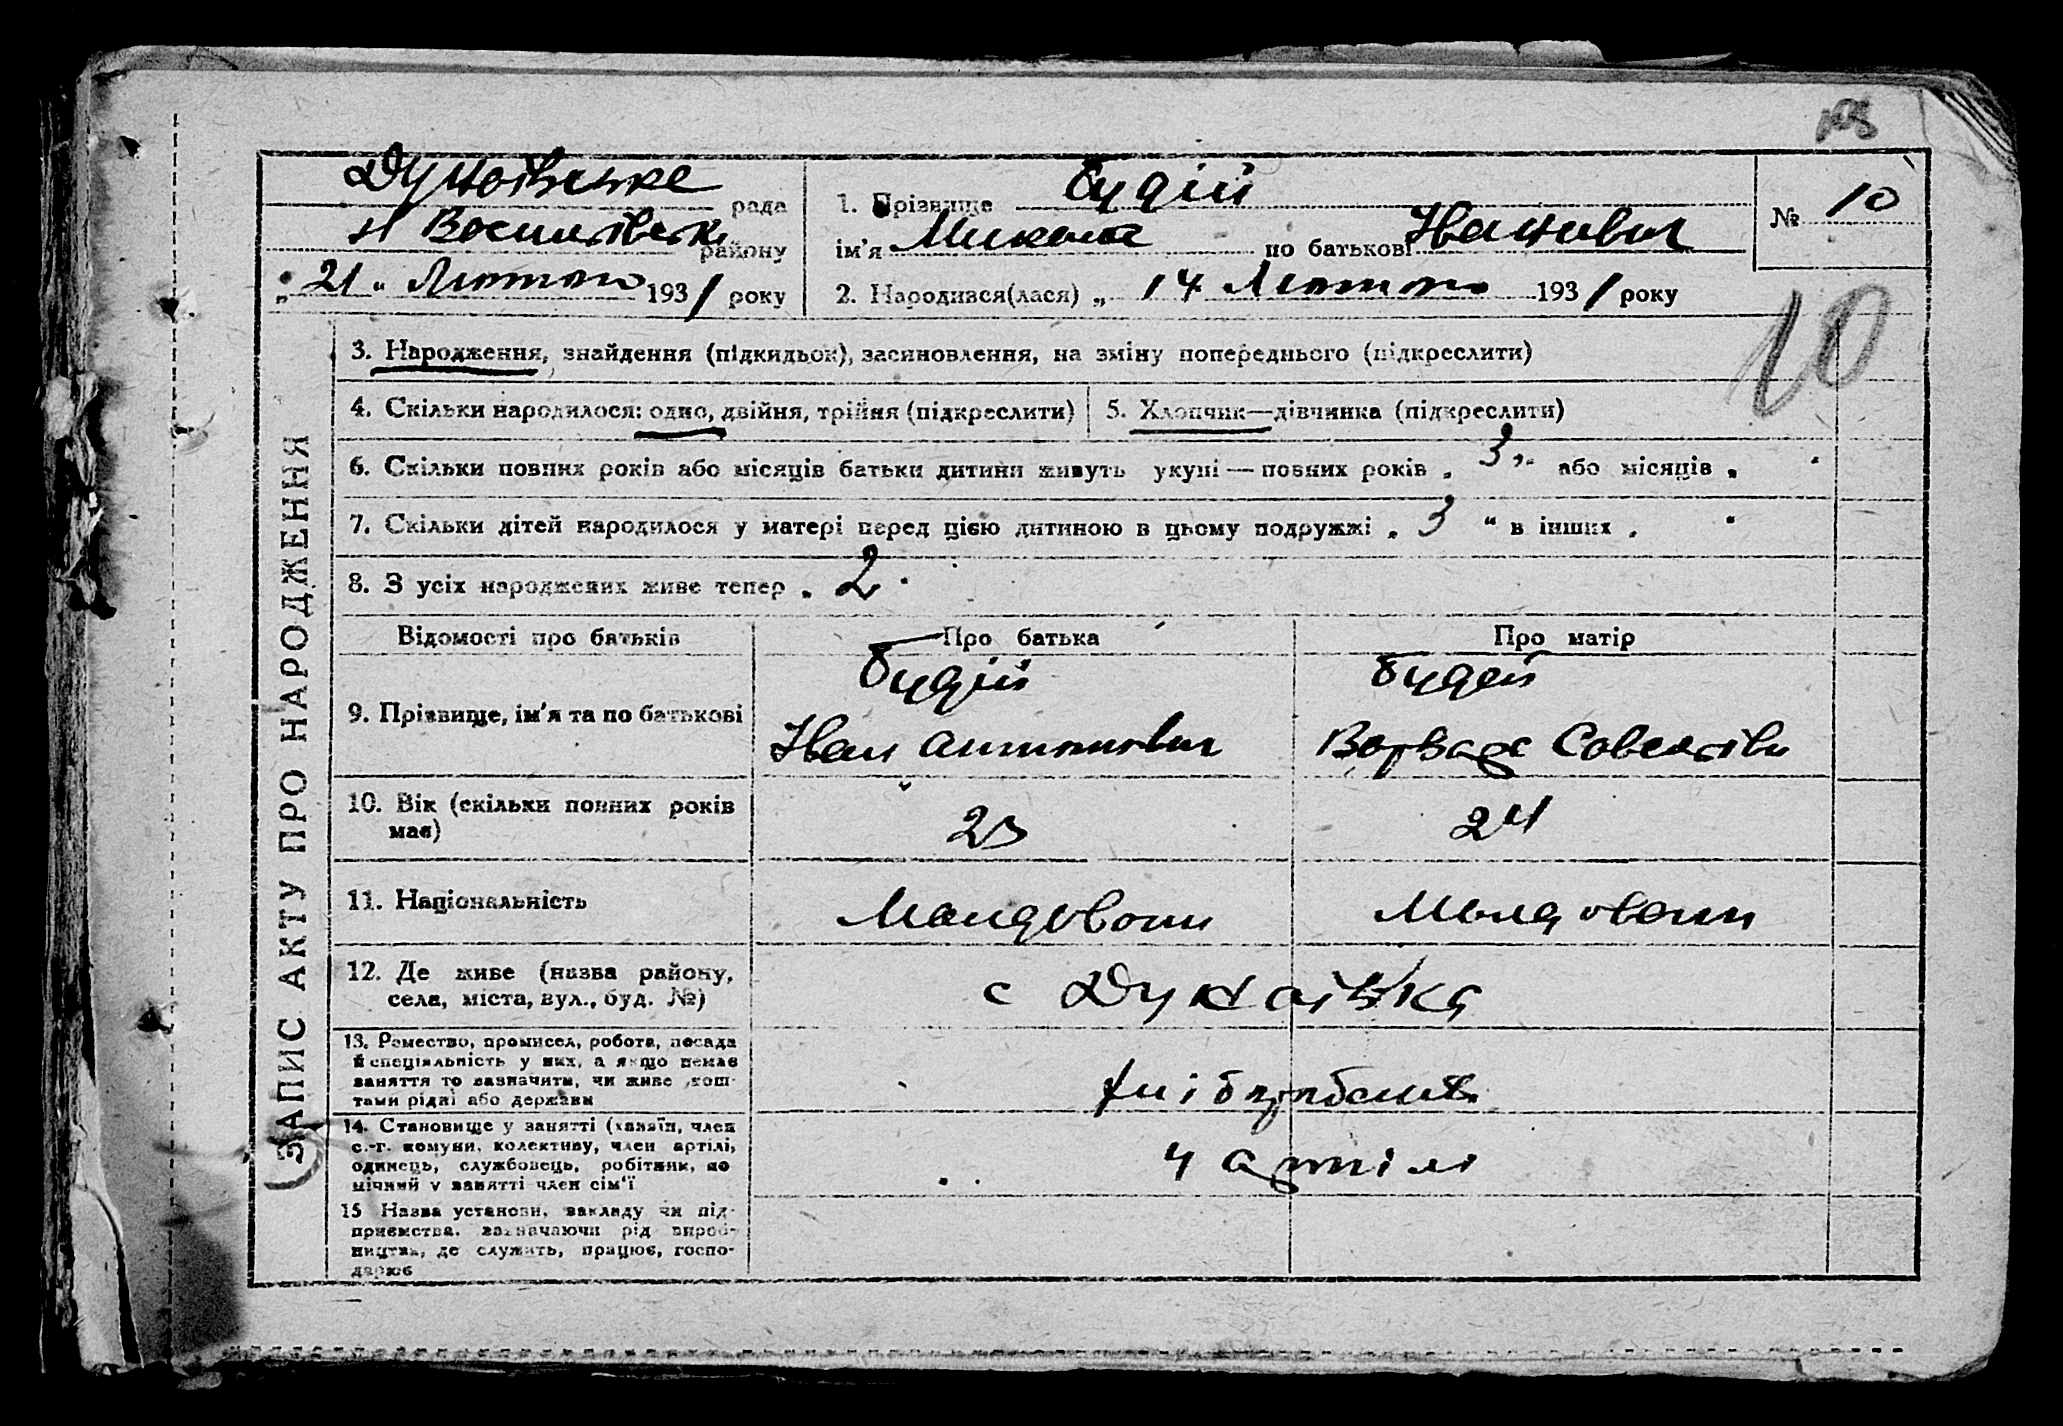 Дунаївське рада
Н Восилівськ району
„ 21 " Лютого 1931 року
1. Прізвище Будій
ім'я Микола по батькові Иванович
2. Народився(лася) „ 14 Лютого 1931 року
№ 10
10
ЗАПИС АКТУ ПРО НАРОДЖЕННЯ
3. Народження, знайдення (підкидьок), засиновлення, на зміну попереднього (підкреслити)
4. Скільки народилося: одно, двійня, трійня (підкреслити)
5. Хлопчик—дівчинка (підкреслити)
6. Скільки повних років або місяців батьки дитини живуть укупі — повних років „ 3 " або місяців „ "
7. Скільки дітей народилося у матері перед цією дитиною в цьому подружжі „ 3 " в інших „ "
8. З усіх народжених живе тепер „ 2
Відомості про батьків
Про батька
Про матір
9. Прізвище, ім'я та по батькові
Будій
Иван Антонович
Будей
Варвара Совеліївн
10. Вік (скільки повних років має)
23
24
11. Національність
Молдовони
Молдовони
12. Де живе (назва району, села, міста, вул., буд. №)
с Дунаївка
13. Ремество, промисел, робота, посада
й спеціяльність у них, а якщо немає
заняття то зазначити, чи живе кош-
тами рідні або держави
хлібороб
14. Становище у занятті (хазяїн, член
с.-г. комуни, колективу, член артілі,
одинець, службовець, робітник, по
мічний у занятті член сім'ї
у артілі
15 Назва установи, закладу чи під-
приємства, зазначаючи рід вироб-
ництва, де служить, працює, госпо-
дарює